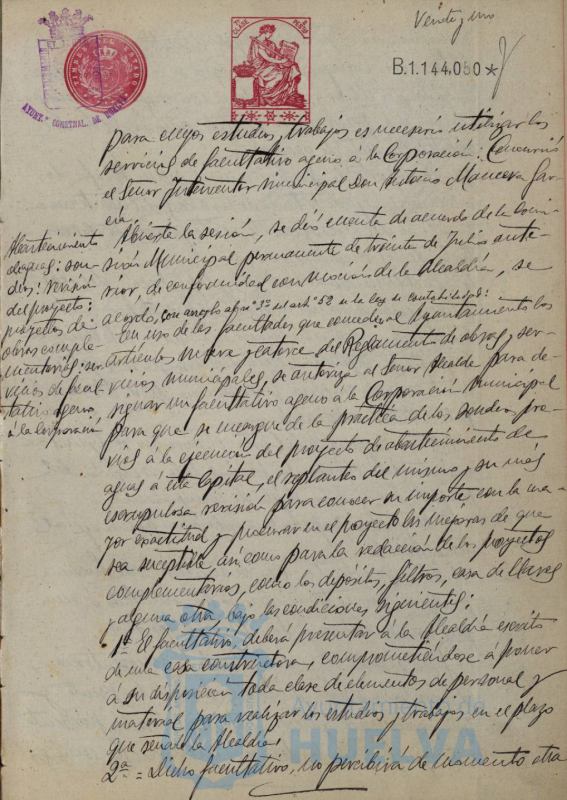 Veinte y uno
B.1.144,080 *
TIMBRE DEL ESTADO
CLASE
AYUNT.º CONSTNAL. DE HUELVA
para cuyos estudios y trabajos es necesario utilizar los
servicios de facultativo ageno á la Corporación: Concurrió
el Señor Interventor municipal Don Antonio Mancera Gar-
cia.
Abierta la sesión, se dió cuenta de acuerdo de la Comi-
sión Municipal permanente de treinta de Julio ante-
rior, de conformidad con moción de la Alcaldía, se
acordó, con arreglo al nº 3º del artº 52 de la ley de contabilidad:
Abastecimiento
de aguas: son-
deos: revisión
del proyecto:
proyectos de
obras comple-
mentarias: ser-
vicios de facul-
tativo ageno
á la Corporación
En uso de las facultades que concede al Ayuntamiento los
artículos nueve y catorce del Reglamento de obras y ser-
vicios municipales, se autoriza al Señor Alcalde para de-
signar un facultativo ageno á la Corporación Municipal
para que se encargue de la práctica de los sondeos pre-
vios á la ejecución del proyecto de abastecimiento de
aguas á esta Capital, el replanteo del mismo y su mas
escrupulosa revisión para conocer su importe con la ma-
yor exactitud y procurar en el proyecto las mejoras de que
sea suceptible así como para la redacción de los proyectos
complementarios, como los depósitos, filtros, casa de llaves
y alguna otra, bajo las condiciones siguientes:
1ª El facultativo deberá presentar á la Alcaldía escrito
de una casa constructora, comprometiéndose á poner
á su disposición toda clase de elementos de personal y
material para realizar los estudios y trabajos en el plazo
que señale la Alcaldía.
2ª = Dicho facultativo, no percibirá de momento otra
Ayuntamiento de
HUELVA